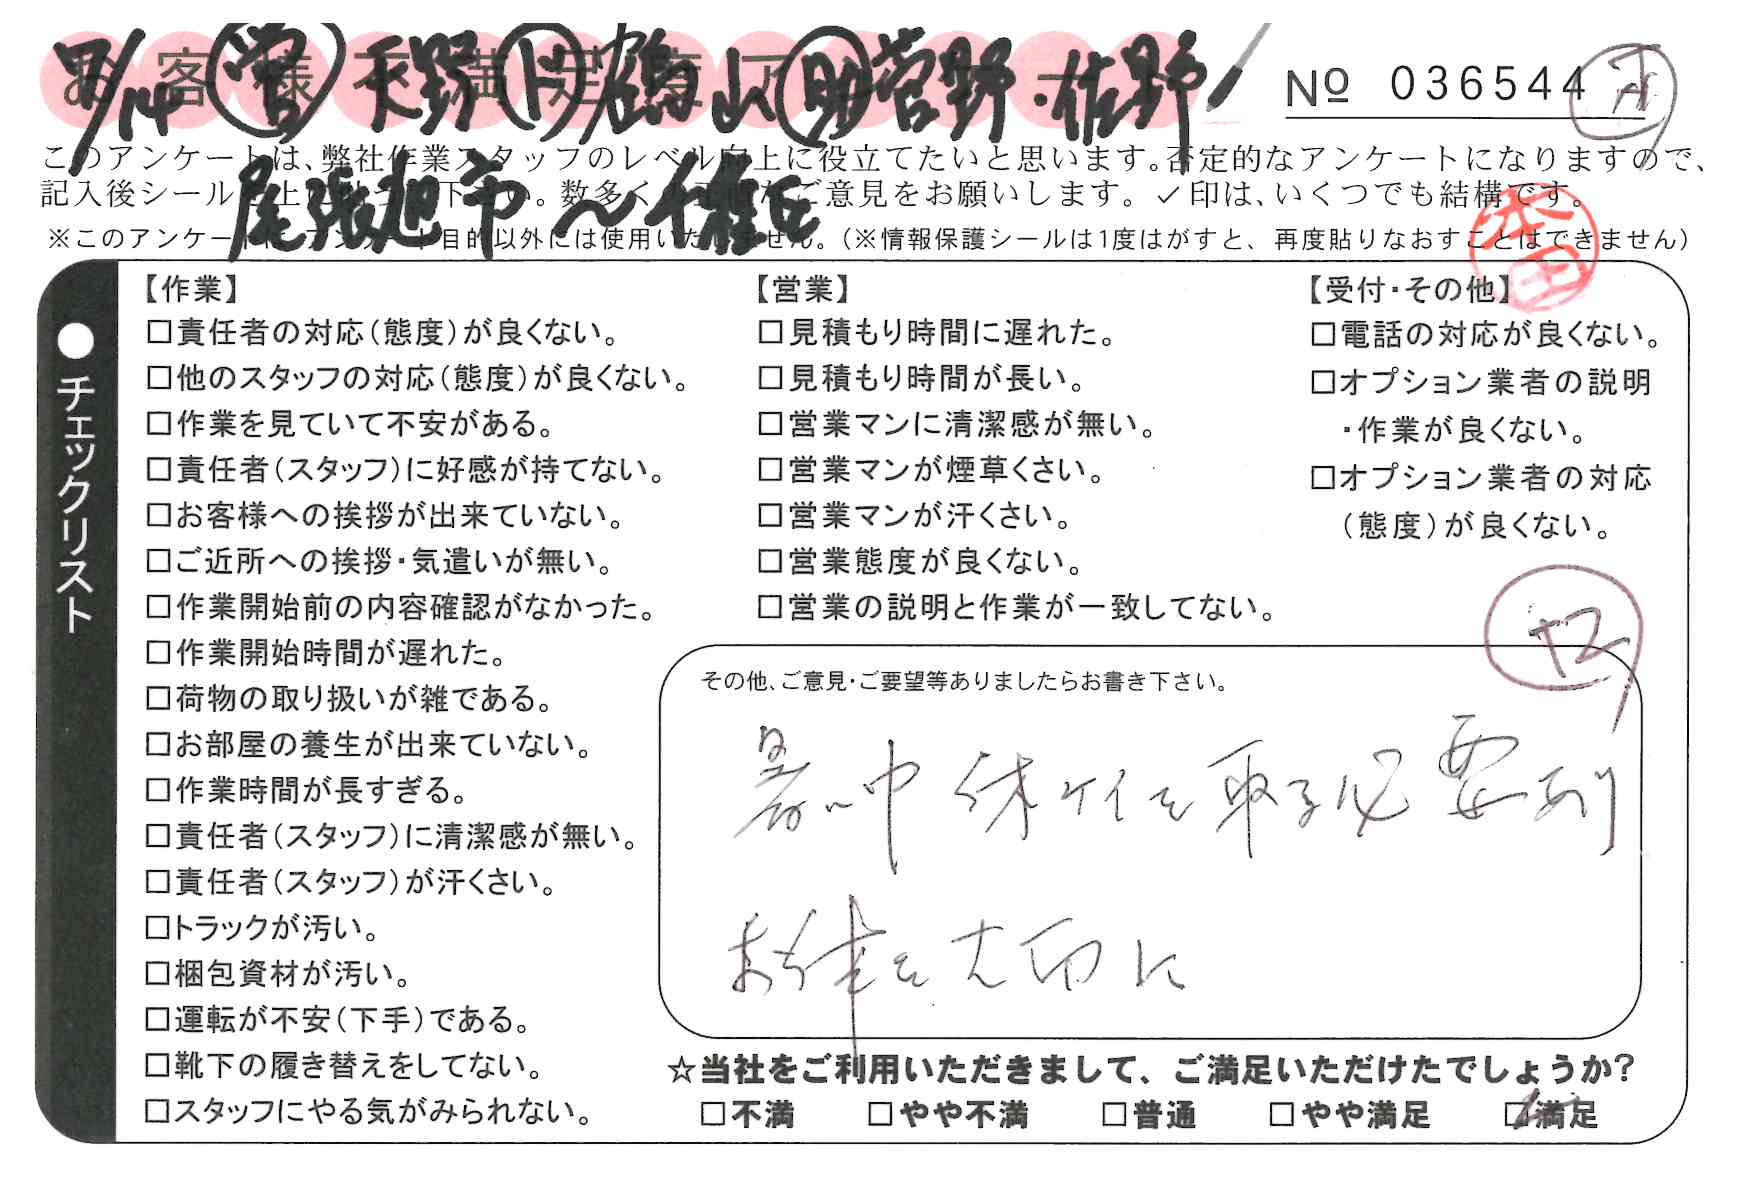 お客様不満足度アンケート
7/14 営 天野 ド 鶴山 助 菅野・佐野
No 036544
このアンケートは、弊社作業スタッフのレベル向上に役立てたいと思います。否定的なアンケートになりますので、
記入後シールを上に貼って下さい。数多くの正直なご意見をお願いします。✓印は、いくつでも結構です。
尾張旭市 〜
※このアンケートは、アンケート目的以外には使用いたしません。(※情報保護シールは1度はがすと、再度貼りなおすことはできません)
本田
●チェックリスト
【作業】
□責任者の対応(態度)が良くない。
□他のスタッフの対応(態度)が良くない。
□作業を見ていて不安がある。
□責任者(スタッフ)に好感が持てない。
□お客様への挨拶が出来ていない。
□ご近所への挨拶・気遣いが無い。
□作業開始前の内容確認がなかった。
□作業開始時間が遅れた。
□荷物の取り扱いが雑である。
□お部屋の養生が出来ていない。
□作業時間が長すぎる。
□責任者(スタッフ)に清潔感が無い。
□責任者(スタッフ)が汗くさい。
□トラックが汚い。
□梱包資材が汚い。
□運転が不安(下手)である。
□靴下の履き替えをしてない。
□スタッフにやる気がみられない。
【営業】
□見積もり時間に遅れた。
□見積もり時間が長い。
□営業マンに清潔感が無い。
□営業マンが煙草くさい。
□営業マンが汗くさい。
□営業態度が良くない。
□営業の説明と作業が一致してない。
【受付・その他】
□電話の対応が良くない。
□オプション業者の説明
・作業が良くない。
□オプション業者の対応
(態度)が良くない。
その他、ご意見・ご要望等ありましたらお書き下さい。
暑い中 休ケイを取る必要あり
お体を大切に
☆当社をご利用いただきまして、ご満足いただけたでしょうか?
□不満 □やや不満 □普通 □やや満足 ☑満足